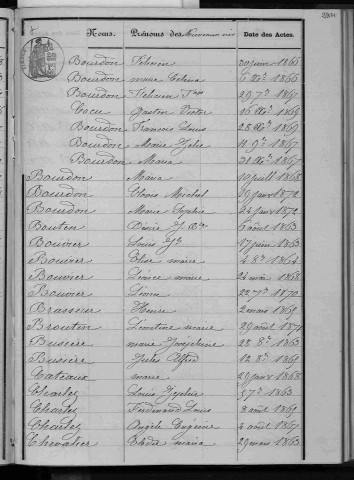 Noms. Prénoms des Nouveaux nés Date des Actes.
Bourdon Félicien 30 juin 1865
Bourdon marie Celina 6 Xbre 1866
Bourdon Félicien Jph 29 7bre 1867
Gaston Victor 16 Xbre 1869
Bourdon François Louis 28 Xbre 1869
Bourdon Marie Zélie 11 9bre 1867
Bourdon Maria 31 Xbre 1867
Bourdon Maria 10 juill 1868
Bourdon Clovis Michel 19 janv 1872
Bourdon Marie Sophie 24 janv 1872
Bouten Désiré J. Bte 6 août 1863
Bouvier Louis Jh 17 juin 1863
Bouvier Elise marie 4 8bre 1864
Bouvier Léonce marie 24 mai 1868
Bouvier Léonie 22 7bre 1870
Brasseur Henri 2 mars 1869
Brouten Léontine marie 29 août 1871
Busière marie Joséphine 28 8bre 1863
Busière Jules Alfred 12 8bre 1869
Cateaux marie 29 janv 1868
Charles Louis Zéphir 5 7bre 1863
Charles Ferdinand Louis 8 août 1865
Charles Angèle Eugénie 4 août 1867
Chevalier Elodie maria 29 mars 1863